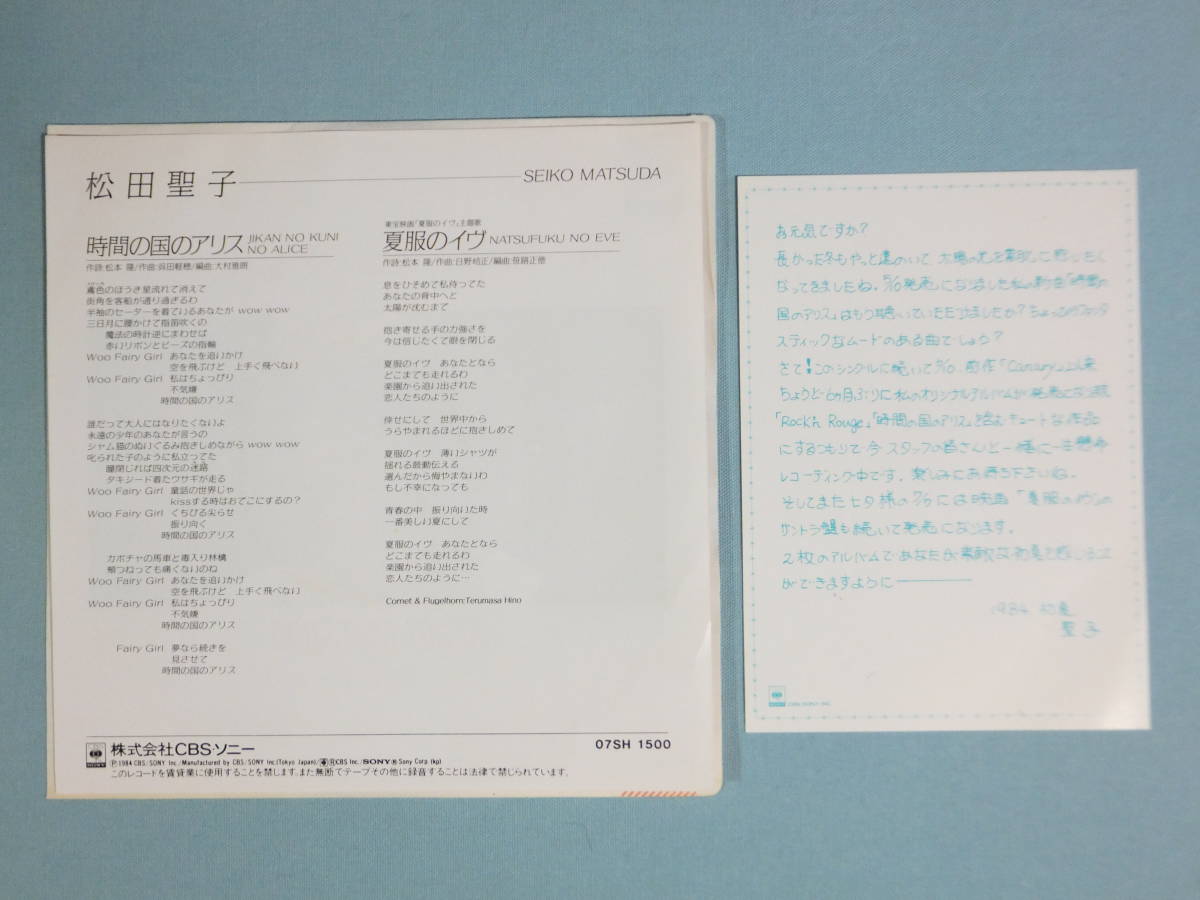 松田聖子
SEIKO MATSUDA
時間の国のアリス JIKAN NO KUNI NO ALICE
作詩:松本 隆/作曲:呉田軽穂/編曲:大村雅朗
鳶色のほうき星流れて消えて
街角を客船が通り過ぎるわ
半袖のセーターを着ているあなたが wow wow
三日月に腰かけて指笛吹くの
魔法の時計逆にまわせば
赤いリボンとビーズの指輪
Woo Fairy Girl あなたを追いかけ
空を飛ぶけど 上手く飛べない
Woo Fairy Girl 私はちょっぴり
不気嫌
時間の国のアリス
誰だって大人にはなりたくないよ
永遠の少年のあなたが言うの
シャム猫のぬいぐるみ抱きしめながら wow wow
叱られた子のように私立ってた
瞳閉じれば四次元の迷路
タキシード着たウサギが走る
Woo Fairy Girl 童話の世界じゃ
kissする時はおでこにするの?
Woo Fairy Girl くちびる尖らせ
振り向く
時間の国のアリス
カボチャの馬車と毒入り林檎
頬つねっても痛くないのね
Woo Fairy Girl あなたを追いかけ
空を飛ぶけど 上手く飛べない
Woo Fairy Girl 私はちょっぴり
不気嫌
時間の国のアリス
Fairy Girl 夢なら続きを
見させて
時間の国のアリス
東宝映画「夏服のイヴ」主題歌
夏服のイヴ NATSUFUKU NO EVE
作詩:松本 隆/作曲:日野皓正/編曲:笹路正徳
息をひそめて私待ってた
あなたの背中へと
太陽が沈むまで
抱き寄せる手の力強さを
今は信じたくて眼を閉じる
夏服のイヴ あなたとなら
どこまでも走れるわ
楽園から追い出された
恋人たちのように
倖せにして 世界中から
うらやまれるほどに抱きしめて
夏服のイヴ 薄いシャツが
揺れる鼓動伝える
選んだから悔やまないわ
もし不幸になっても
青春の中 振り向いた時
一番美しい夏にして
夏服のイヴ あなたとなら
どこまでも走れるわ
楽園から追い出された
恋人たちのように…
Cornet & Flugelhorn:Terumasa Hino
SONY
株式会社CBS・ソニー
07SH 1500
Ⓟ1984 CBS/SONY Inc./Manufactured by CBS/SONY Inc.(Tokyo Japan)/ⓇCBS Inc./SONY® Sony Corp (kg)
このレコードを賃貸業に使用することを禁じます。また無断でテープその他に録音することは法律で禁じられています。
お元気ですか?
長かった冬もやっと遠のいて 太陽の光を素敵に感じたく
なってきましたね。5/10発売になりました私の新曲「時間の
国のアリス」はもう聴いていただけましたか? ちょっぴりファンタ
スティックなムードのある曲でしょう?
さて!このシングルに続いて6/10、前作「Canary」以来
ちょうど6ヶ月ぶりに私のオリジナルアルバムが発売になります。
「Rock'n Rouge」「時間の国のアリス」を含むキュートな作品
にするつもりで今スタッフの皆さんと一緒に一生懸命
レコーディング中です。楽しみにお待ち下さいね。
そしてまた七夕様の7/7には映画「夏服のイヴ」の
サントラ盤も続いて発売になります。
2枚のアルバムであなたが素敵な初夏を感じること
ができますように――
1984 初夏
聖子
SONY CBS/SONY INC.